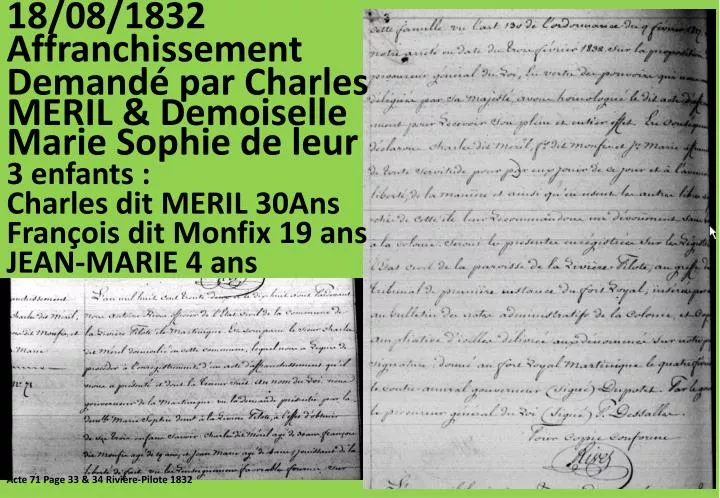 18/08/1832
Affranchissement
Demandé par Charles
MERIL & Demoiselle
Marie Sophie de leur
3 enfants :
Charles dit MERIL 30Ans
François dit Monfix 19 ans
JEAN-MARIE 4 ans
L'an mil huit cent trente deux et le dix huit août
de l'Etat civil de la Commune de
la Rivière Pilote île Martinique. Est comparu le sieur Charles
dit Méril domicilié en cette commune, lequel nous a requis de
procéder à l'enregistrement d'un acte d'affranchissement qu'il
nous a présenté et dont la teneur suit. Au nom du Roi. nous
gouverneur de la Martinique vu la demande présentée par la
Marie Sophie dont à la Rivière Pilote, à l'effet d'obtenir
de ses trois enfans savoir Charles dit Méril âgé de 30 ans François
dit Monfix âgé de 19 ans, et Jean Marie âgé de 4 ans
liberté de fait. vu les
Acte 71 Page 33 & 34 Rivière-Pilote 1832
cette famille vu l'art. de l'ordonnance du 9 février 1827
notre arrêté en date du février sur la proposition
procureur général du Roi, En vertu des pouvoirs qui
délégués par Sa Majesté, avons homologué le dit acte
pour recevoir son plein et entier effet. En conséquence
déclarons Charles dit Méril, fs dit Monfix et Jn Marie
de toute servitude pour jouir du jour de ce jour et à l'avenir
liberté, de la manière et ainsi qu'en usent les autres libres
de cette île leur recommandons un dévouement
à la colonie. Seront les présentes enrégistrées sur les registres
l'Etat civil de la paroisse de la Rivière-Pilote, au greffe du
tribunal de première instance du fort Royal, insérées
au bulletin des actes administratifs de la Colonie, et
ampliation d'icelles délivrée aux dénommés sur notre
signature. donné au fort Royal Martinique le quatre
le contre amiral gouverneur (signé) Dupotet. Par le gouv
le procureur général du Roi (Signé) P. Dessalles.
Pour copie conforme
Rives